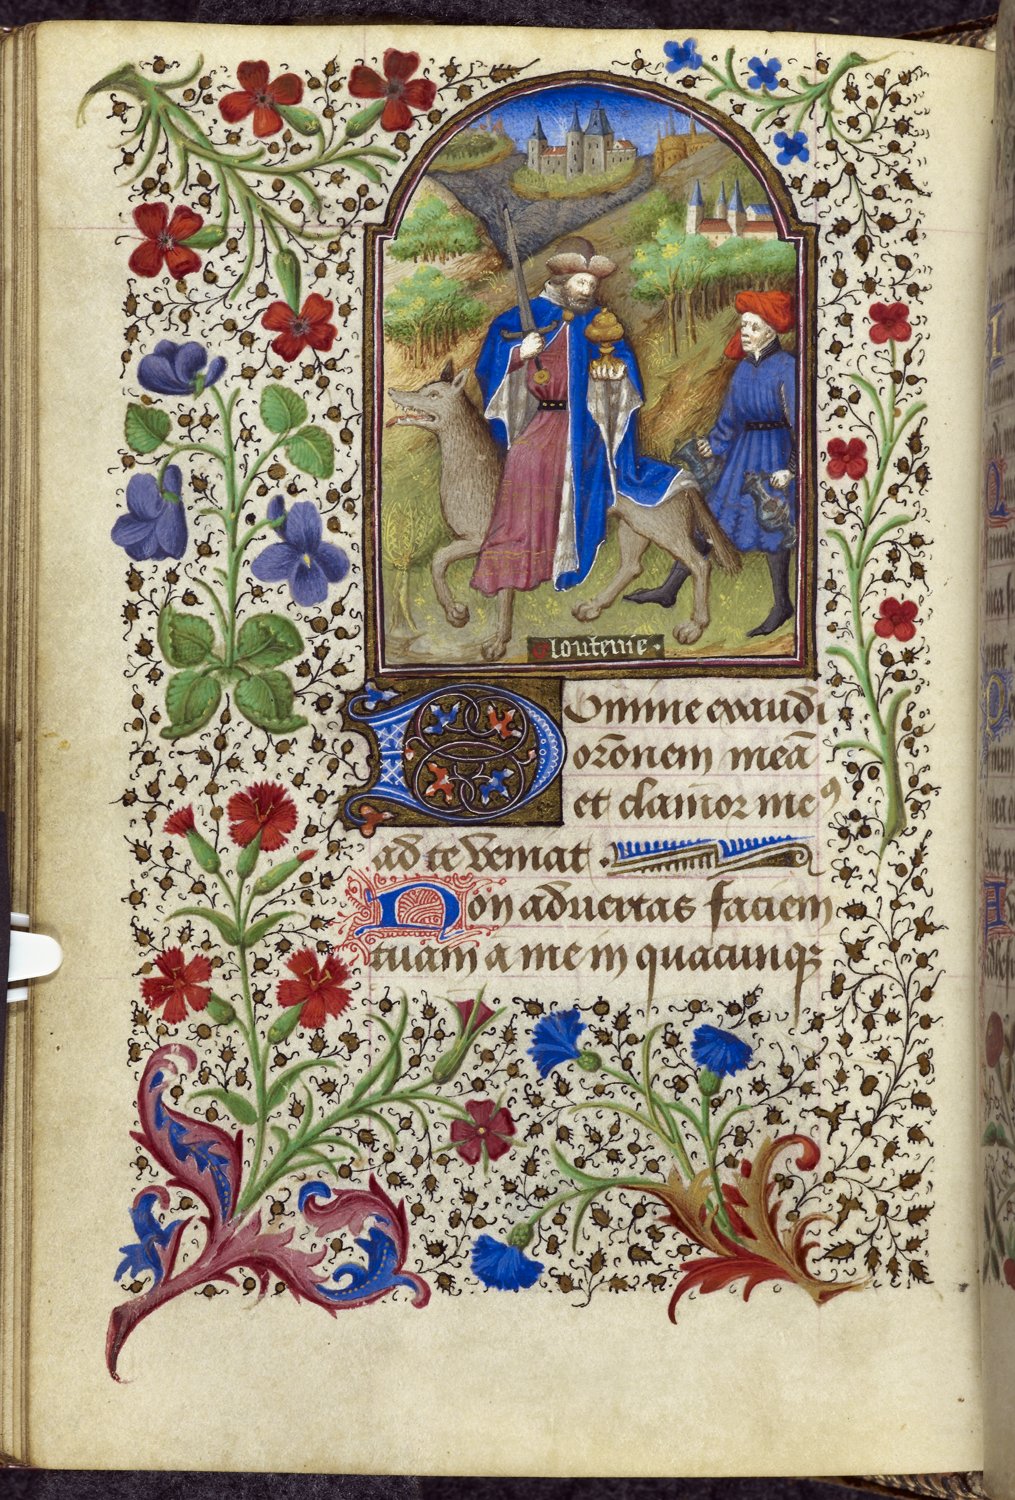 Gloutenie.
Domine exaudi
or̄onem meā
et clamor meꝰ
ad te veniat.
Non advertas faciem
tuam a me in quacunqꝫ